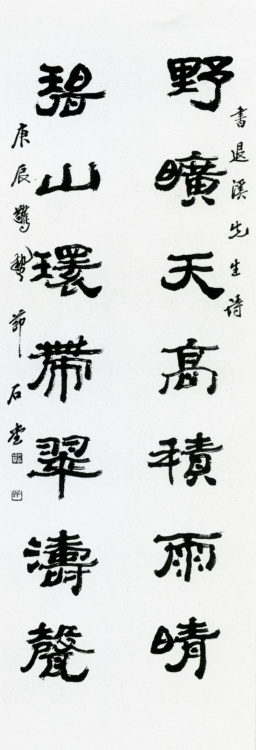 書退溪先生詩
野曠天高積雨晴
碧山環帶翠濤聲
庚辰驚蟄節 石堂